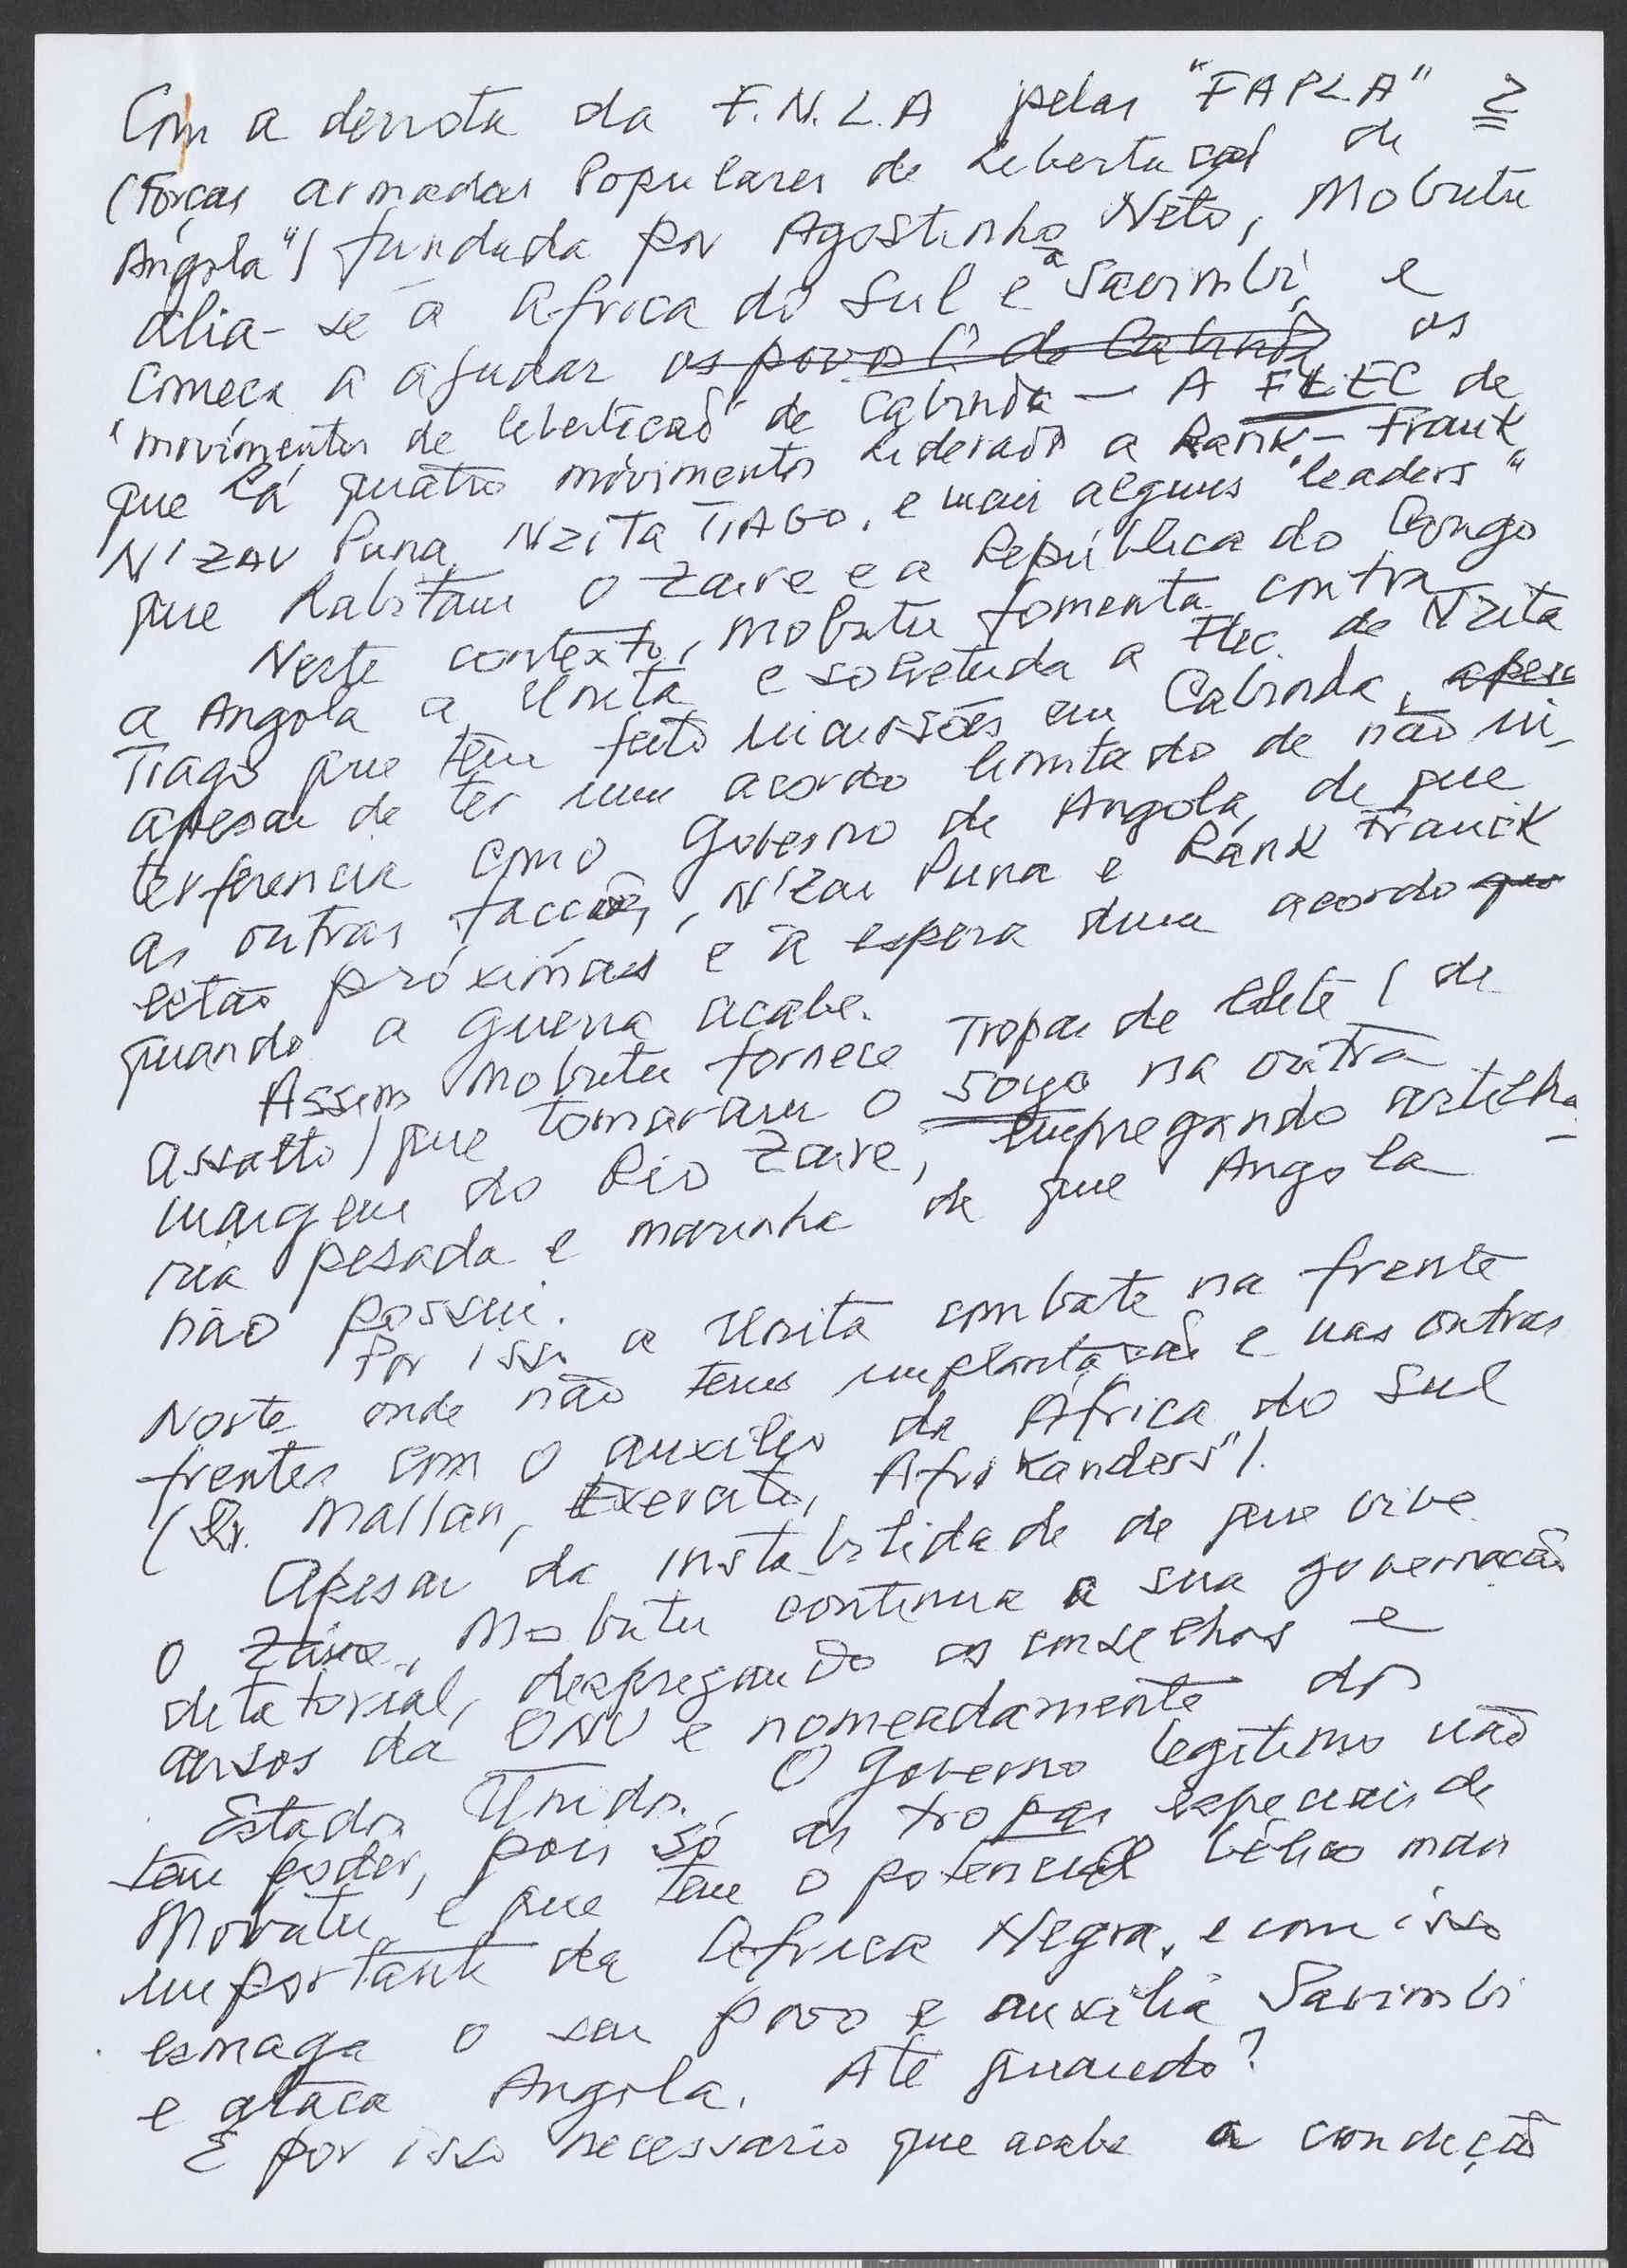 Com a derrota da F.N.L.A pelas "FAPLA" 2
(Forças armadas Populares de Libertação de
Angola"/ fundada por Agostinho Neto, Mobutu
alia-se à Africa do Sul e a Savimbi, e
começa a ajudar os povos de Cabinda os
"movimentos de libertação" de Cabinda — A FLEC de
que há quatro movimentos liderado a Rank-Frank
N'ZAU Puna, NZITA TIAGO, e mais alguns "leaders"
que habitam o Zaire e a República do Congo
Neste contexto, Mobutu fomenta contra
a Angola a Unita e sobretudo a Flec. de Nzita
Tiago que tem feito incursões em Cabinda, apesa
apesar de ter um acordo limitado de não in-
terferencia com o Governo de Angola, de que
as outras facções, N'Zau Puna e Rank Franck
estão próximas e à espera dum acordo que
quando a guerra acabe.
Assim Mobutu fornece Tropas de elite (de
assalto) que tomaram o Soyo na outra
margem do Rio Zaire, empregando artilha-
ria pesada e marinha de que Angola
não possui.
Por isso a Unita combate na frente
Norte onde não tem implantação e nas outras
frentes com o auxilio da África do Sul
(Gr. Mallan, Exercito, Afrikanders"/.
Apesar da instabilidade de que vive
o Zaire, Mobutu continua a sua governação
ditatorial, desprezando os conselhos e
avisos da ONU e nomeadamente dos
Estados Unidos. O Governo legitimo não
tem poder, pois só as tropas especiais de
Mobutu é que tem o potencial bélico mais
importante da Africa Negra, e com isso
esmaga o seu povo e auxilia Savimbi
e ataca Angola. Até quando?
É por isso necessario que acabe a condição